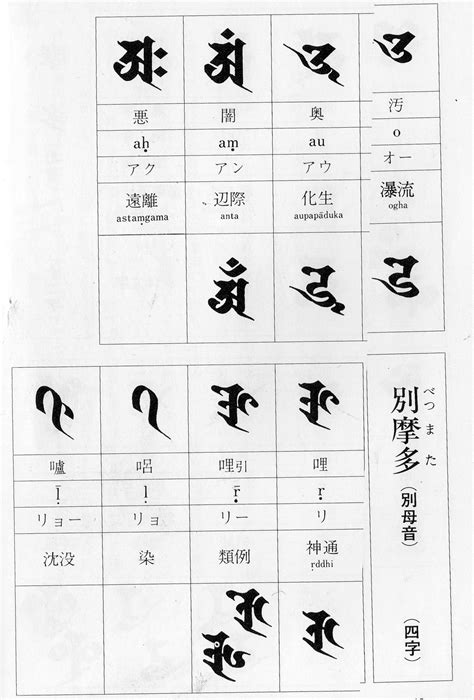 𑖌
汚
o
オー
瀑流
ogha
𑖌
𑖍
奥
au
アウ
化生
aupapāduka
𑖍
𑖀𑖽
闇
aṃ
アン
辺際
anta
𑖀𑖽
𑖀𑖾
悪
aḥ
アク
遠離
astaṃgama
べつまた
別摩多(別母音)
(四字)
𑖆
哩
ṛ
リ
神通
ṛddhi
𑖆
𑖇
哩引
ṝ
リー
類例
𑖇
𑖇
𑖈
呂
ḷ
リョ
染
𑖉
嚧
ḹ
リョー
沈没